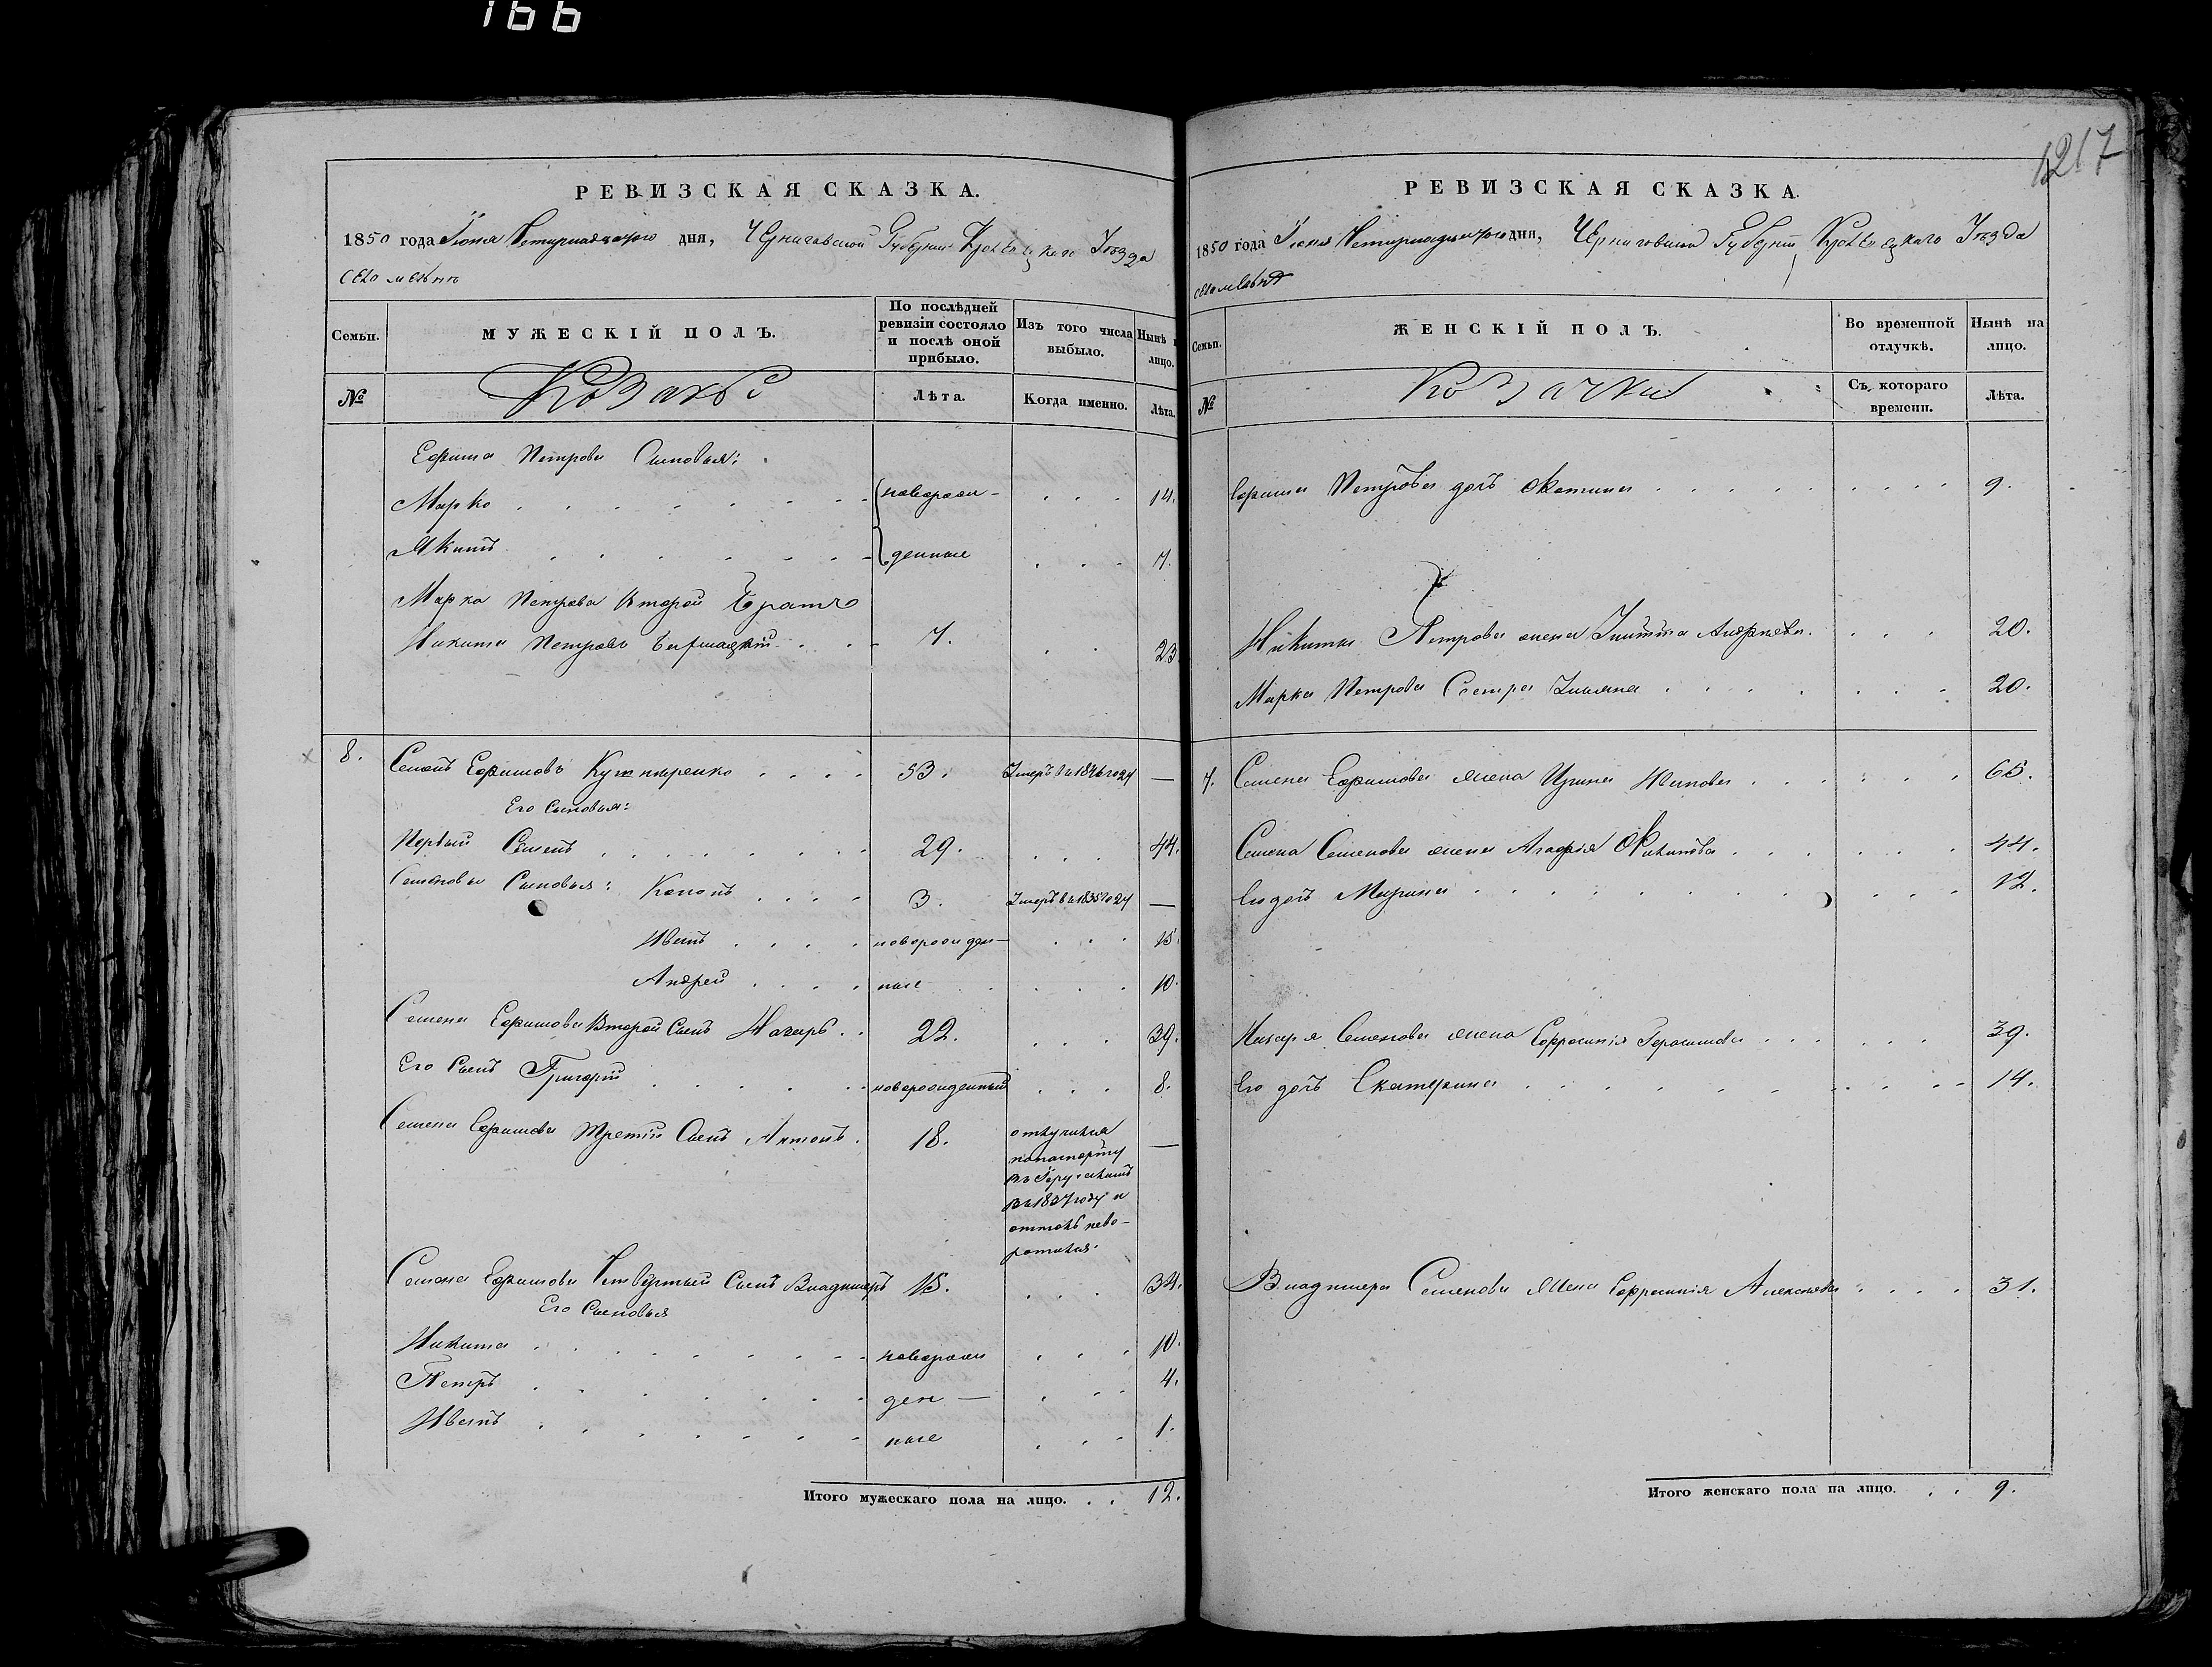 166
1217
РЕВИЗСКАЯ СКАЗКА.
1850 года Іюня Четырнадцатого дня, Черниговской Губерніи Уѣзда
село
Семьи.
МУЖЕСКІЙ ПОЛЪ.
По послѣдней ревизіи состояло и послѣ оной прибыло.
Изъ того числа выбыло.
Нынѣ лицо.
№
Козаки
Лѣта.
Когда именно.
Лѣта.
Ефима Петрова Сыновья:
Марко новорож- 14.
Якимъ денные 7.
Марка Петрова Второй Братъ
Никита Петровъ 7. 23
8. Семенъ Ефимовъ 53. Умеръ въ 1846 году —
Его Сыновья:
Первый Семенъ 29. 44.
Семеновы Сыновья: Кононъ 3. Умеръ въ 1835 году —
Иванъ новорожден- 15.
Андрей ные 10.
Семена Ефимова Второй Сынъ Назаръ 22. 39.
Его Сынъ Григорій новорожденный 8.
Семена Ефимова Третій Сынъ Антонъ 18. отлучился —
попаспорту
въ
въ 1837 году и
оттоль нево-
ротился.
Семена Ефимова Четвертый Сынъ Владимеръ 15. 34.
Его Сыновья
Никита новорож 10.
Петръ ден— 4.
Иванъ ные 1.
Итого мужескаго пола на лицо. 12.
РЕВИЗСКАЯ СКАЗКА.
1850 года Іюня Четырнадцатого дня, Черниговской Губерніи Уѣзда
село
Семьи.
ЖЕНСКІЙ ПОЛЪ.
Во временной отлучкѣ.
Нынѣ на лицо.
№
Козачки
Съ котораго времени.
Лѣта.
Ефима Петрова дочь 9.
Никиты Петрова жена Андреева 20.
Марка Петрова Сестра Ульяна 20.
7. Семена Ефимова жена Ирина Иванова 65.
Семена Семенова жена Агафія 44.
Его дочь Марина 12.
Назара Семенова жена Ефросинія Герасимова 39.
Его дочь Екатерина 14.
Владимера Семенова Жена Ефросинія Алексѣева 31.
Итого женскаго пола на лицо. 9.